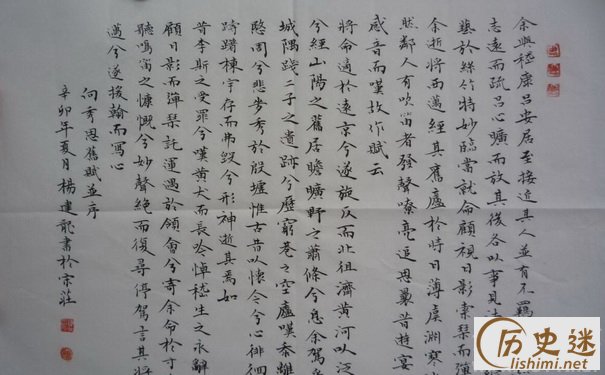 余與嵇康吕安居至接近其人並有不羈
志遠而疏吕心曠而放其後各以事見法
藝於絲竹特妙臨當就命顧視日影索琴而彈
余逝將西邁經其舊廬於時日薄虞淵寒
然鄰人有吹笛者發聲嘹亮追思曩昔遊宴
感音而嘆故作賦云
將命適於遠京兮遂旋反而北徂濟黄河以泛
兮經山陽之舊居瞻曠野之蕭條兮息余駕乎
城隅踐二子之遺跡兮歷窮巷之空廬嘆黍離
愍周兮悲麥秀於殷墟惟古昔以懷今兮心徘徊
躊躇棟宇存而弗毀兮形神逝其焉如
昔李斯之受罪兮嘆黄犬而長吟悼嵇生之永辭
顧日影而彈琴託運遇於領會兮寄余命於寸
聽鳴笛之慷慨兮妙聲絕而復尋停駕言其將
邁兮遂援翰而寫心
向秀思舊賦並序
辛卯年夏月楊建龍書於宗莊
历史迷
lishimi.net